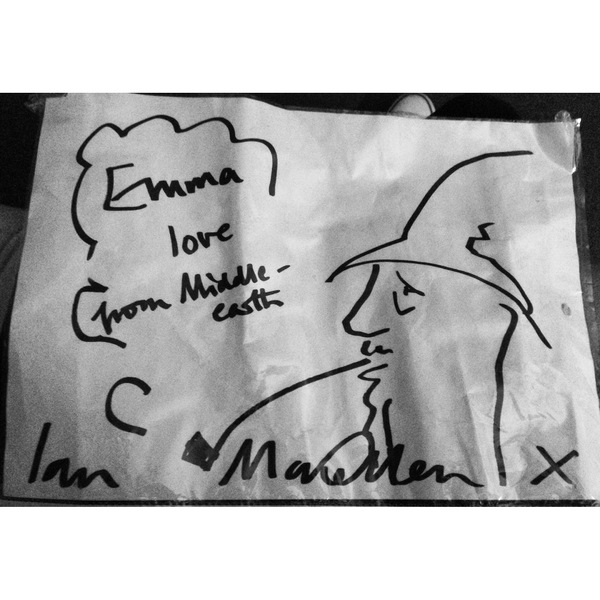 Emma
love
from Middle-
earth
Ian McKellen X